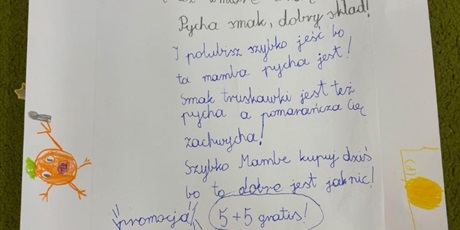 Pycha smak, dobry skład!
I polubisz szybko jeść bo
ta mamba pycha jest!
Smak truskawki jest też
pycha a pomarańcza Cię
zachwycha!
Szybko Mambe kupuj dziś
bo to dobre jest jak nic!
promocja 5+5 gratis!